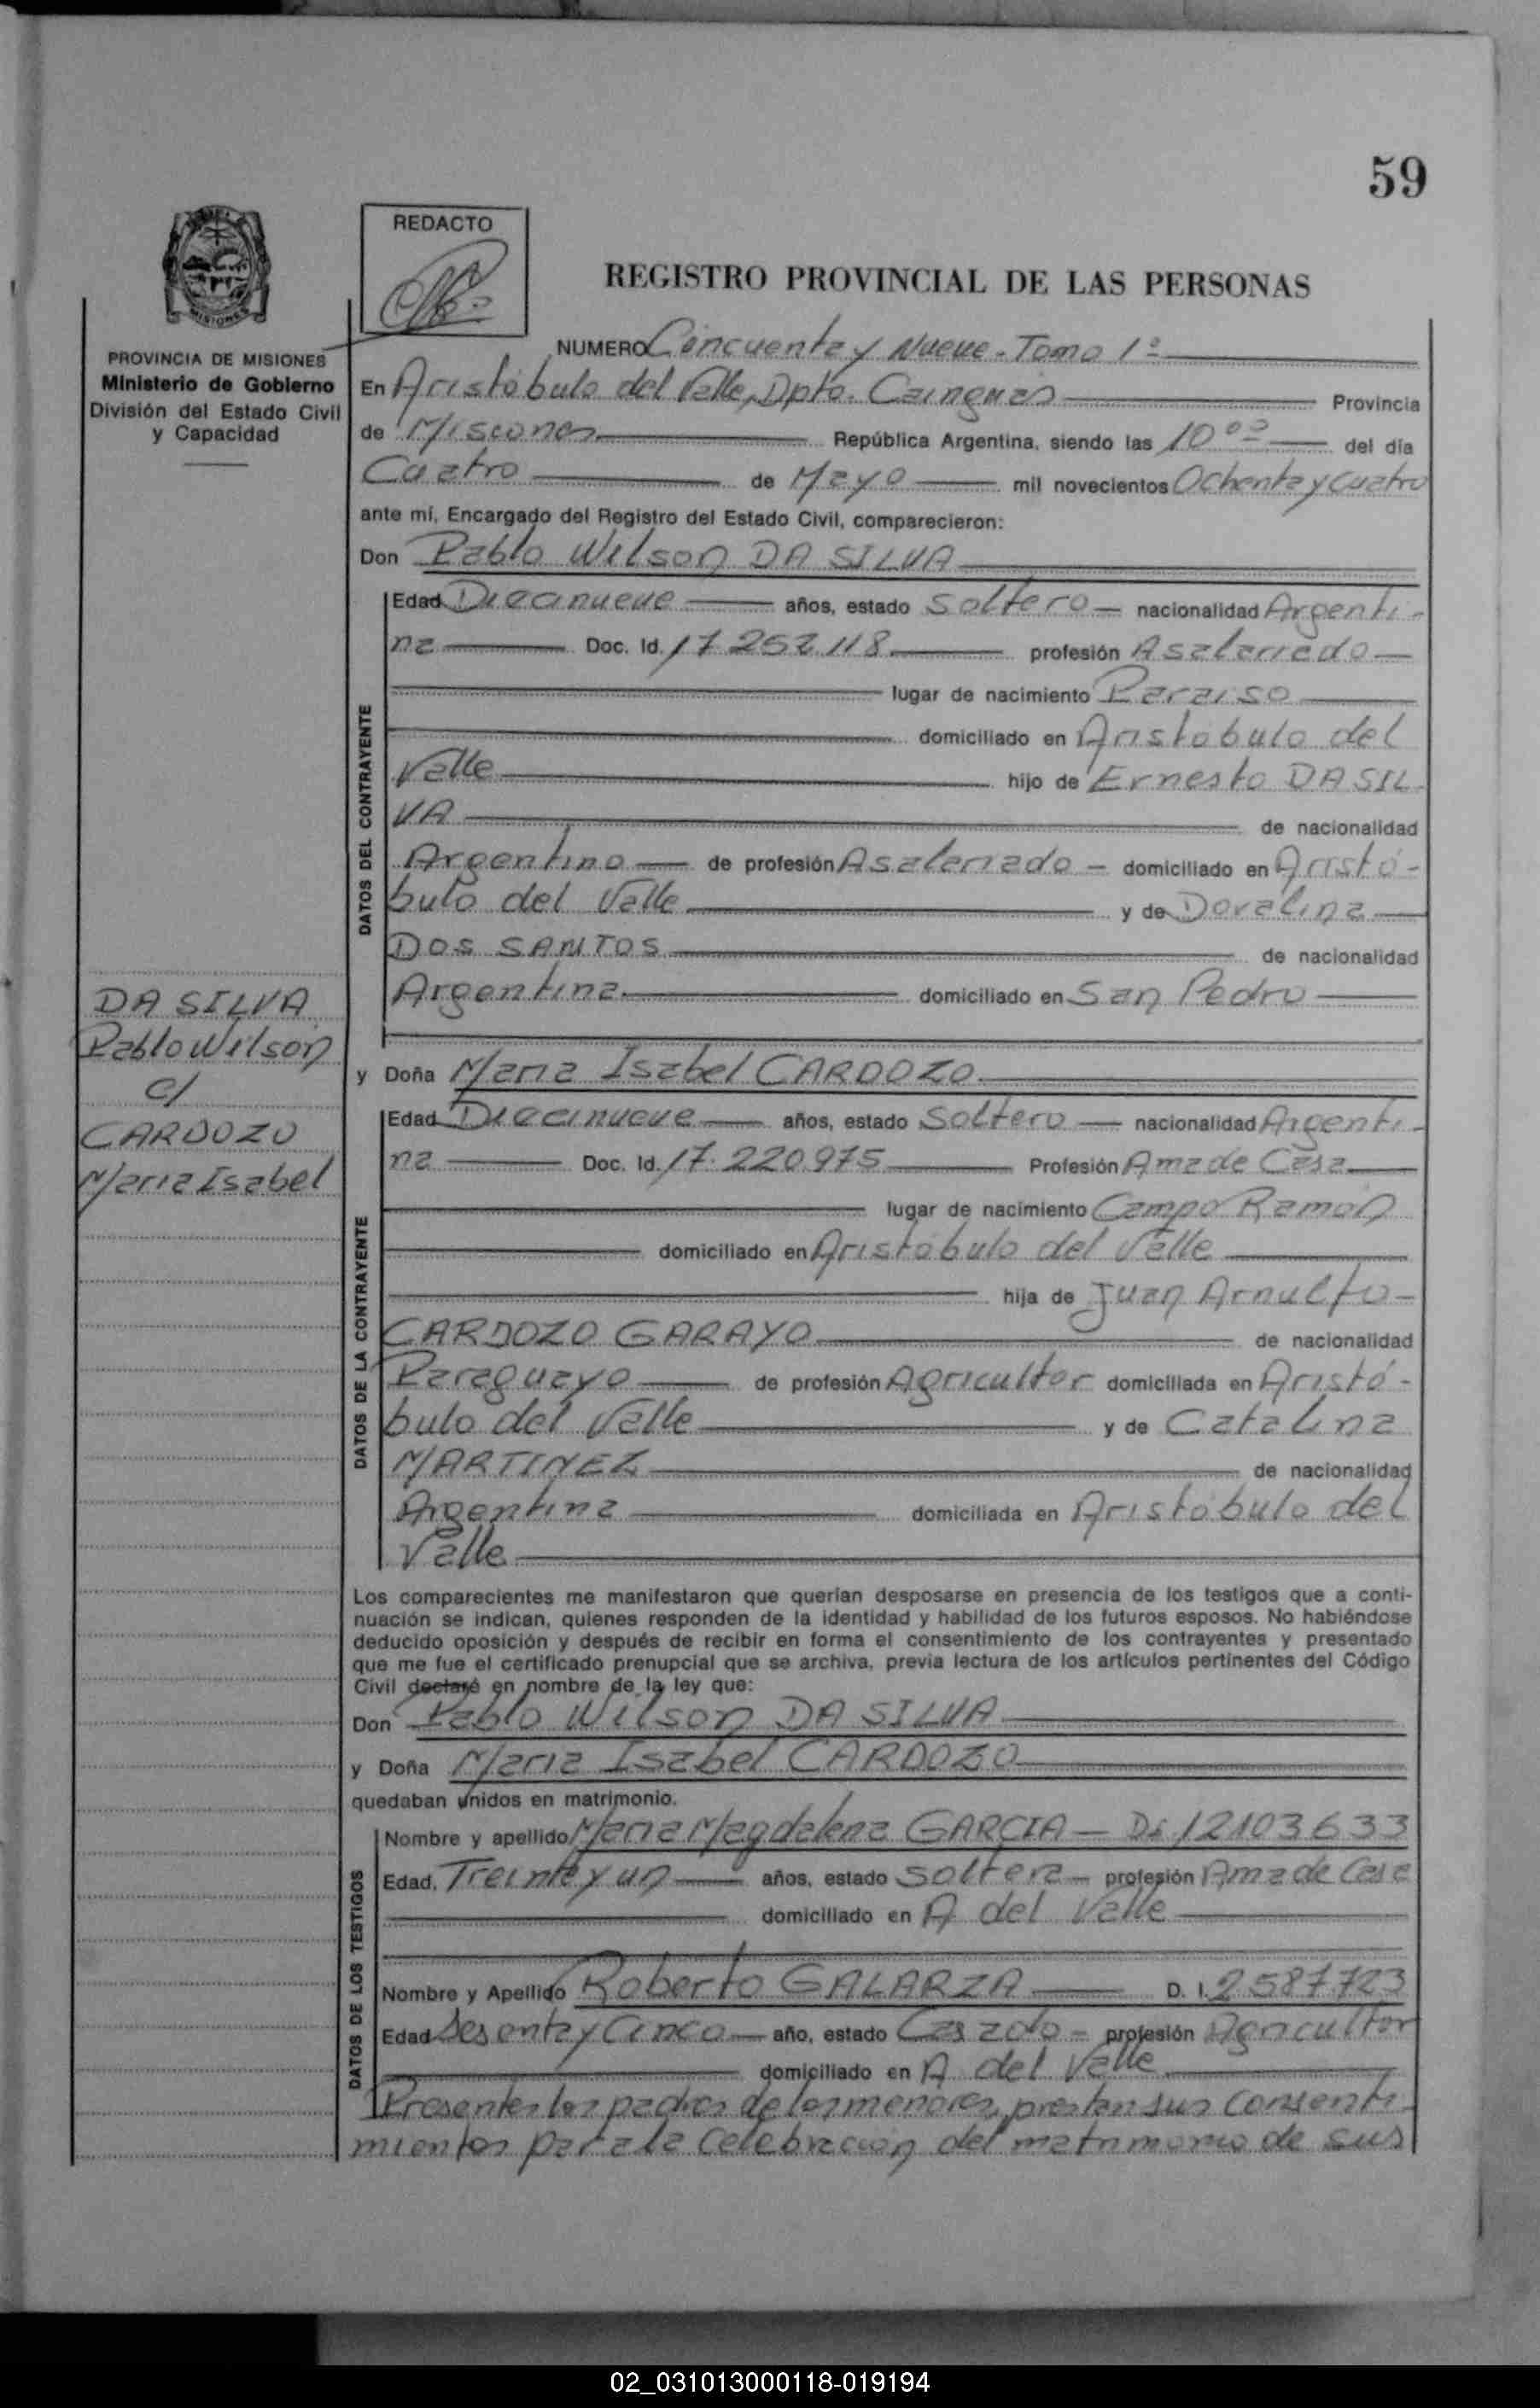 59
REDACTO
REGISTRO PROVINCIAL DE LAS PERSONAS
MISIONES
PROVINCIA DE MISIONES
Ministerio de Gobierno
División del Estado Civil
y Capacidad
NUMERO Cincuenta y Nueve - Tomo 1º
En Aristóbulo del Valle, Dpto. Cainguás Provincia
de Misiones República Argentina, siendo las 10⁰⁰ del día
Cuatro de Mayo mil novecientos Ochenta y Cuatro
ante mí, Encargado del Registro del Estado Civil, comparecieron:
Don Pablo Wilson DA SILVA
Edad Diecinueve años, estado Soltero nacionalidad Argenti-
na Doc. Id. 17.252.118 profesión Asalariado
lugar de nacimiento Paraiso
domiciliado en Aristóbulo del
Valle hijo de Ernesto DA SIL-
VA de nacionalidad
Argentino de profesión Asalariado domiciliado en Aristó-
bulo del Valle y de Doralina
DOS SANTOS de nacionalidad
Argentina domiciliado en San Pedro
DATOS DEL CONTRAYENTE
DA SILVA
Pablo Wilson
c/
CARDOZO
Maria Isabel
y Doña Maria Isabel CARDOZO
Edad Diecinueve años, estado Soltero nacionalidad Argenti-
na Doc. Id. 17.220.975 Profesión Ama de Casa
lugar de nacimiento Campo Ramón
domiciliado en Aristóbulo del Valle
hija de Juan Arnulfo
CARDOZO GARAYO de nacionalidad
Paraguayo de profesión Agricultor domiciliada en Aristó-
bulo del Valle y de Catalina
MARTINEZ de nacionalidad
Argentina domiciliada en Aristóbulo del
Valle
DATOS DE LA CONTRAYENTE
Los comparecientes me manifestaron que querían desposarse en presencia de los testigos que a conti-
nuación se indican, quienes responden de la identidad y habilidad de los futuros esposos. No habiéndose
deducido oposición y después de recibir en forma el consentimiento de los contrayentes y presentado
que me fue el certificado prenupcial que se archiva, previa lectura de los artículos pertinentes del Código
Civil declaré en nombre de la ley que:
Don Pablo Wilson DA SILVA
y Doña Maria Isabel CARDOZO
quedaban unidos en matrimonio.
Nombre y apellido Maria Magdalena GARCIA - Di 12103633
Edad. Treinta y un años, estado Soltera profesión Ama de Casa
domiciliado en A del Valle
Nombre y Apellido Roberto GALARZA D. I. 2587723
Edad Sesenta y Cinco año, estado Casado profesión Agricultor
domiciliado en A. del Valle
DATOS DE LOS TESTIGOS
Presentes los padres de los menores, prestan sus consenti-
mientos para la celebración del matrimonio de sus
02_031013000118-019194